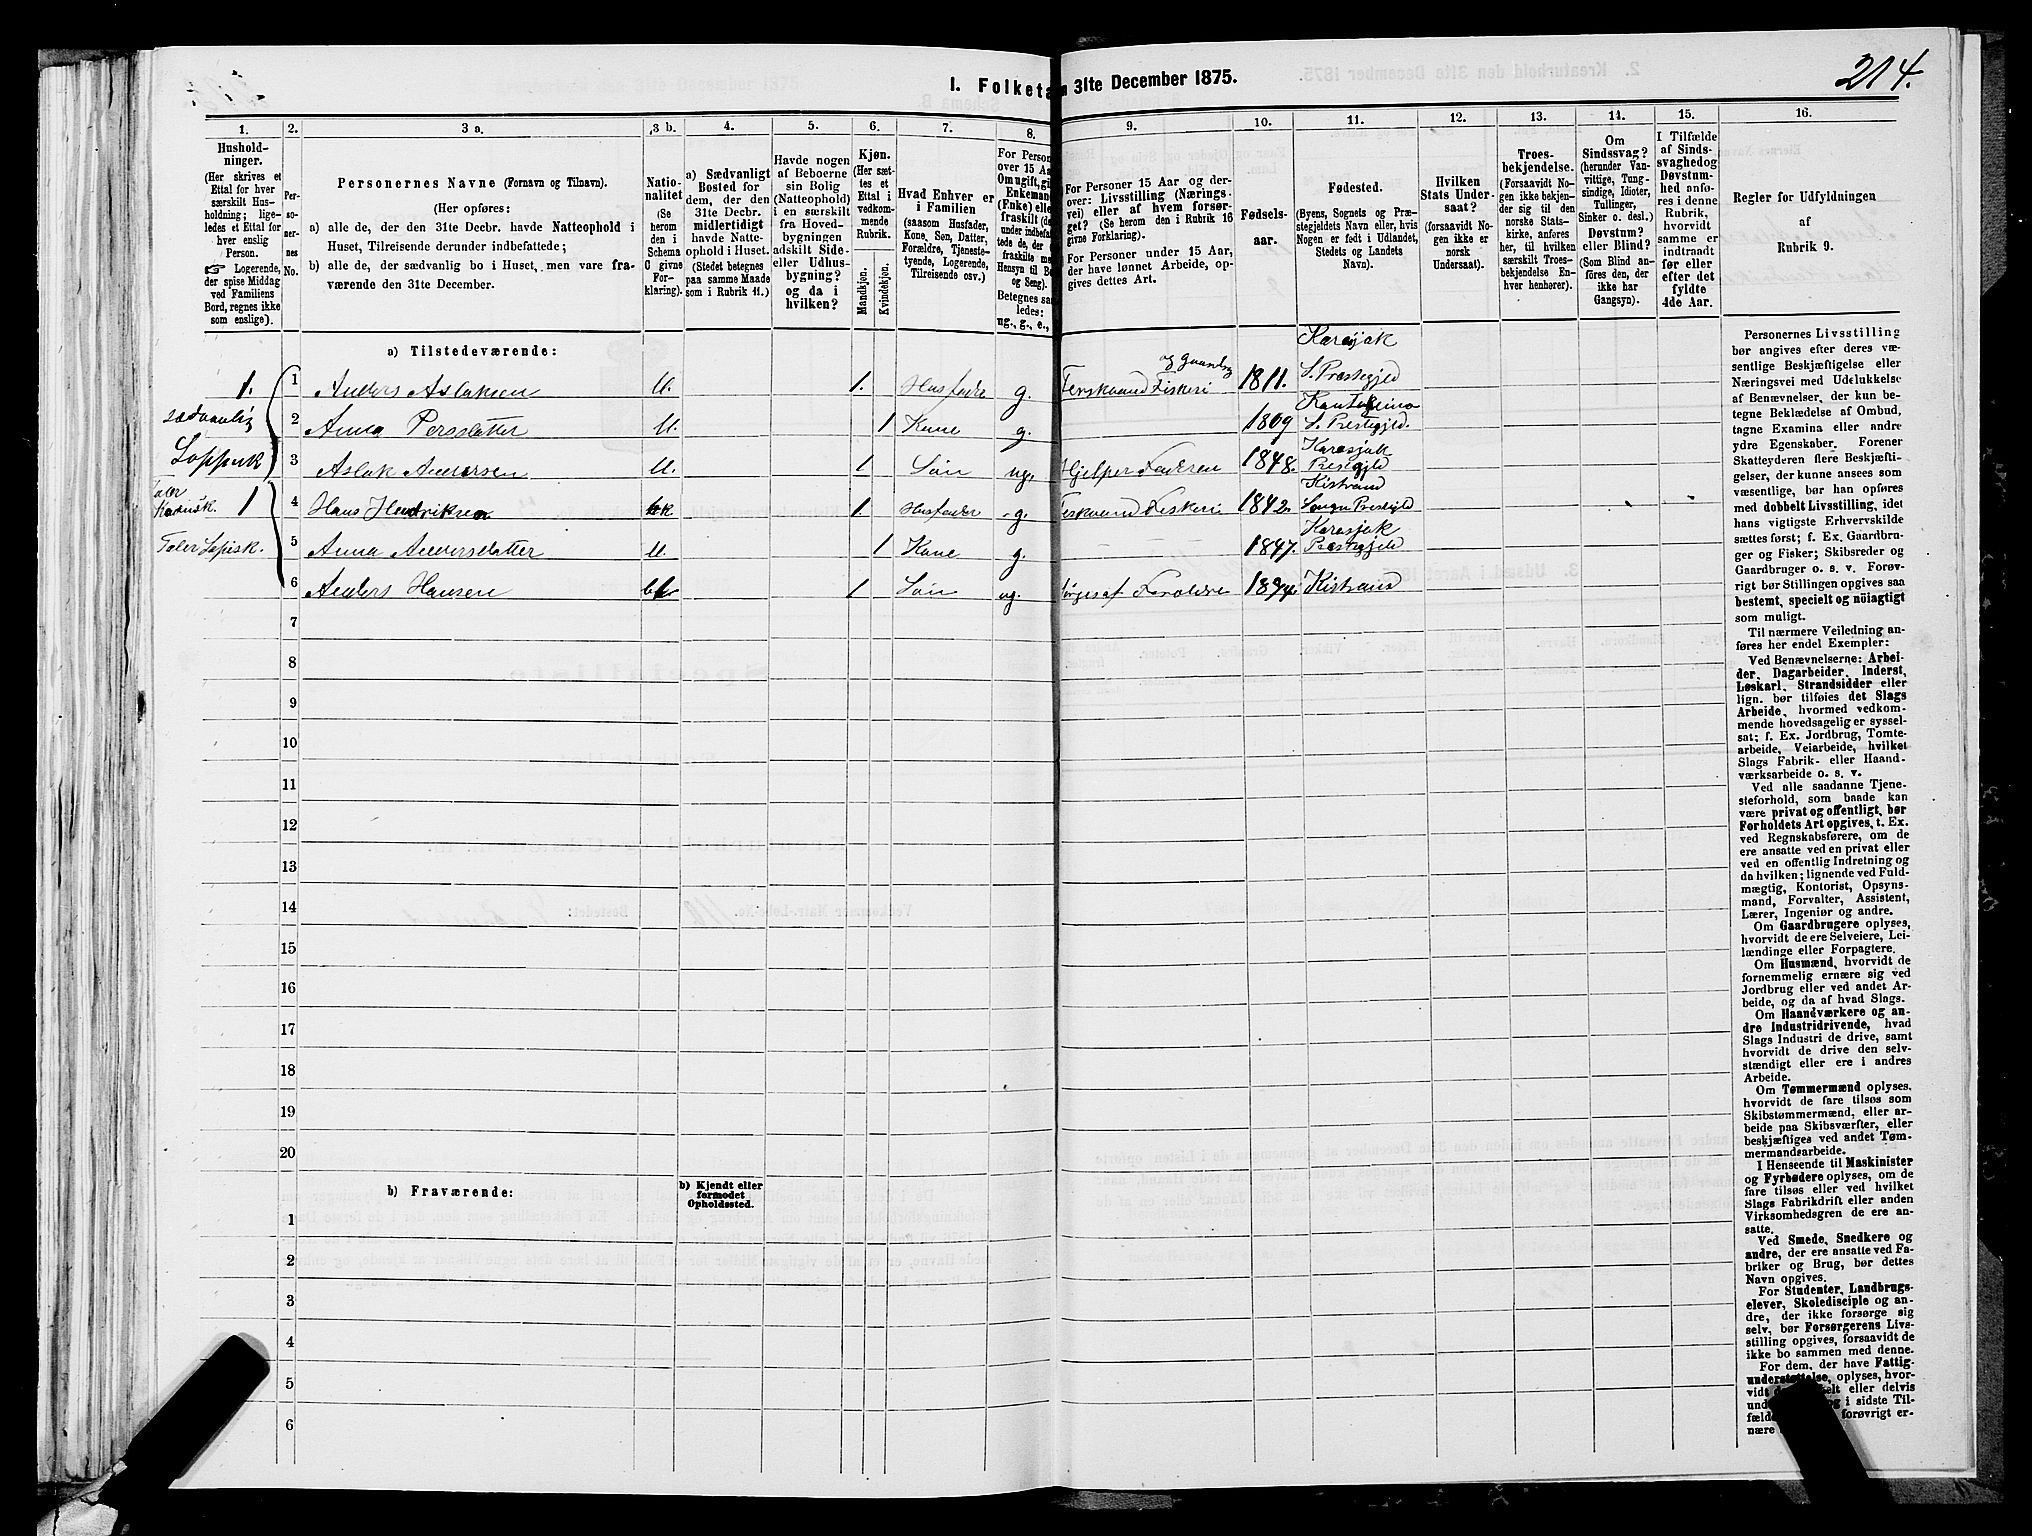 214.
I. Folketa n 31te December 1875.
1.
Hushold-
ninger.
(Her skrives et
Ettal for hver
særskilt Hus-
holdning; lige-
ledes et Ettal for
hver enslig
Person.
☞ Logerende,
der spise Middag
ved Familiens
Bord, regnes ikke
som enslige).
2.
Per-
so-
ner-
nes
No.
3 a.
Personernes Navne (Fornavn og Tilnavn).
(Her opføres:
a) alle de, der den 31te Decbr. havde Natteophold i
Huset, Tilreisende derunder indbefattede;
b) alle de, der sædvanlig bo i Huset, men vare fra-
værende den 31te December.
3 b.
Natio-
nalitet
(Se
herom
den i
Schema
C givne
For-
klaring).
4.
a) Sædvanligt
Bosted for
dem, der den
31te Decbr.
midlertidigt
havde Natte-
ophold i Huset.
(Stedet betegnes
paa samme Maade
som i Rubrik 11.)
5.
Havde nogen
af Beboerne
sin Bolig
(Natteophold)
i en særskilt
fra Hoved-
bygningen
adskilt Side-
eller Udhus-
bygning?
og da i
hvilken?
6.
Kjøn.
(Her sæt-
tes et
Ettal i
vedkom-
mende
Rubrik.
Mandkjøn.
Kvindekjøn.
7.
Hvad Enhver er
i Familien
(saasom Husfader,
Kone, Søn, Datter,
Forældre, Tjeneste-
tyende, Logerende,
Tilreisende osv.)
8.
For Person
over 15 Aa
Om ugift, gi
Enkeman
(Enke) elle
fraskilt (de
under indbefat
tede de, der
fraskilte me
Hensyn til Bo
og Seng).
Betegnes saa
ledes:
ug., g., e.,
9.
For Personer 15 Aar og der-
over: Livsstilling (Nærings-
vei) eller af hvem forsør-
get? (Se herom den i Rubrik 16
givne Forklaring).
For Personer under 15 Aar,
der have lønnet Arbeide, op-
gives dettes Art.
10.
Fødsels-
aar.
11.
Fødested.
(Byens, Sognets og Præ-
stegjeldets Navn eller, hvis
Nogen er født i Udlandet,
Stedets og Landets
Navn).
12.
Hvilken
Stats Under-
saat?
(forsaavidt No-
gen ikke er
norsk
Undersaat).
13.
Troes-
bekjendelse.
(Forsaavidt No-
gen ikke bekjen-
der sig til den
norske Stats-
kirke, anføres
her, til hvilken
særskilt Troes-
bekjendelse En-
hver henhører).
14.
Om
Sindssvag?
(herunder Van-
vittige, Tung-
sindige, Idioter,
Tullinger,
Sinker o. desl.)
Døvstum?
eller Blind?
(Som Blind an-
føres den, der
ikke har
Gangsyn).
15.
I Tilfælde
af Sinds-
svaghedog
Døvstum-
hed anfø-
res i denne
Rubrik,
hvorvidt
samme er
indtraadt
før eller
efter det
fyldte
4de Aar.
16.
Regler for Udfyldningen
af
Rubrik 9.
a) Tilstedeværende:
Karasjok
1. 1 Anders Aslaksen 1. Husfader g. og Gaardbr Fiskeri 1811. S. Præstegjeld
sædvanlig
Kautokeino
2 Anna Persdatter 1 Kone g. 1809 S. Prestegjeld.
Lappisk
Karasjok
3 Aslak Andersen 1 Søn ug. Hjelper Faderen 1848. Prestegjeld
Taler
Kvænsk. 1
Kistrand
4 Hans Hendriksen bk 1. Husfader g. Fiskeri 1842. Sogn Prestegjeld
Taler Lapisk.
Karasjok
5 Anna Andersdatter 1 Kone g. 1847. Præstegjeld
6 Anders Hansen 1 Søn ug. sørges af Foreldre 1874. Kistrand
7
8
9
10
11
12
13
14
15
16
17
18
19
20
b) Fraværende:
b) Kjendt eller
formodet
Opholdssted.
1
2
3
4
5
6
Personernes Livsstilling
bør angives efter deres væ-
sentlige Beskjæftigelse eller
Næringsvei med Udelukkelse
af Benævnelser, der kun be-
tegne Beklædelse af Ombud,
tagne Examina eller andre
ydre Egenskaber. Forener
Skatteyderen flere Beskjæfti-
gelser, der kunne ansees som
væsentlige, bør han opføres
med dobbelt Livsstilling, idet
hans vigtigste Erhvervskilde
sættes først; f. Ex. Gaardbru-
ger og Fisker; Skibsreder og
Gaardbruger o. s. v. Forøv-
rigt bør Stillingen opgives saa
bestemt, specielt og nöiagtigt
som muligt.
Til nærmere Veiledning an-
føres her endel Exempler:
Ved Benævnelserne: Arbei-
der, Dagarbeider, Inderst,
Løskarl, Strandsidder eller
lign. bør tilføies det Slags
Arbeide, hvormed vedkom-
mende hovedsagelig er syssel-
sat; f. Ex. Jordbrug, Tomte-
arbeide, Veiarbeide, hvilket
Slags Fabrik- eller Haand-
værksarbeide o. s. v.
Ved alle saadanne Tjene-
steforhold, som baade kan
være privat og offentligt, bør
Forholdets Art opgives, t. Ex.
ved Regnskabsførere, om de
ere ansatte ved en privat eller
ved en offentlig Indretning og
da hvilken; lignende ved Fuld-
mægtig, Kontorist, Opsyns-
mand, Forvalter, Assistent,
Lærer, Ingeniør og andre.
Om Gaardbrugere oplyses,
hvorvidt de ere Selveiere, Lei-
lændinge eller Forpagtere.
Om Husmænd, hvorvidt de
fornemmelig ernære sig ved
Jordbrug eller ved andet Ar-
beide, og da af hvad Slags.
Om Haandværkere og an-
dre Industridrivende, hvad
Slags Industri de drive, samt
hvorvidt de drive den selv-
stændigt eller ere i andres
Arbeide.
Om Tømmermænd oplyses,
hvorvidt de fare tilsøs som
Skibstømmermænd, eller ar-
beide paa Skibsværfter, eller
beskjæftiges ved andet Tøm-
mermandsarbeide.
I Henseende til Maskinister
og Fyrbødere oplyses, om de
fare tilsøs eller ved hvilket
Slags Fabrikdrift eller anden
Virksomhedsgren de ere an-
satte.
Ved Smede, Snedkere og
andre, der ere ansatte ved Fa-
briker og Brug, bør dettes
Navn opgives.
For Studenter, Landbrugs-
elever, Skoledisciple og an-
dre, der ikke forsørge sig
selv, bør Forsørgerens Livs-
stilling opgives, forsaavidt de
ikke bo sammen med denne.
For dem, der have Fattig-
understøttelse, oplyses, hvor-
vidt d elt eller delvis
und og i sidste Til-
fælde forøvrigt er-
nære